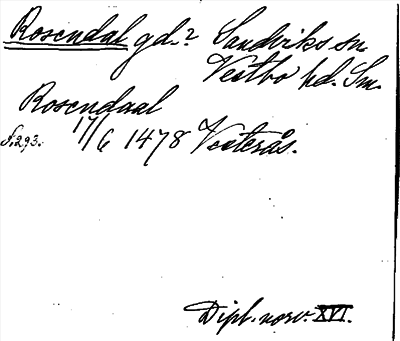 Rosendal gd.? Sandviks sn
Vestbo hd. Sm.
Rosendaal
S.293. 17/6 1478 Vesterås.
Dipl. norv. XVI.